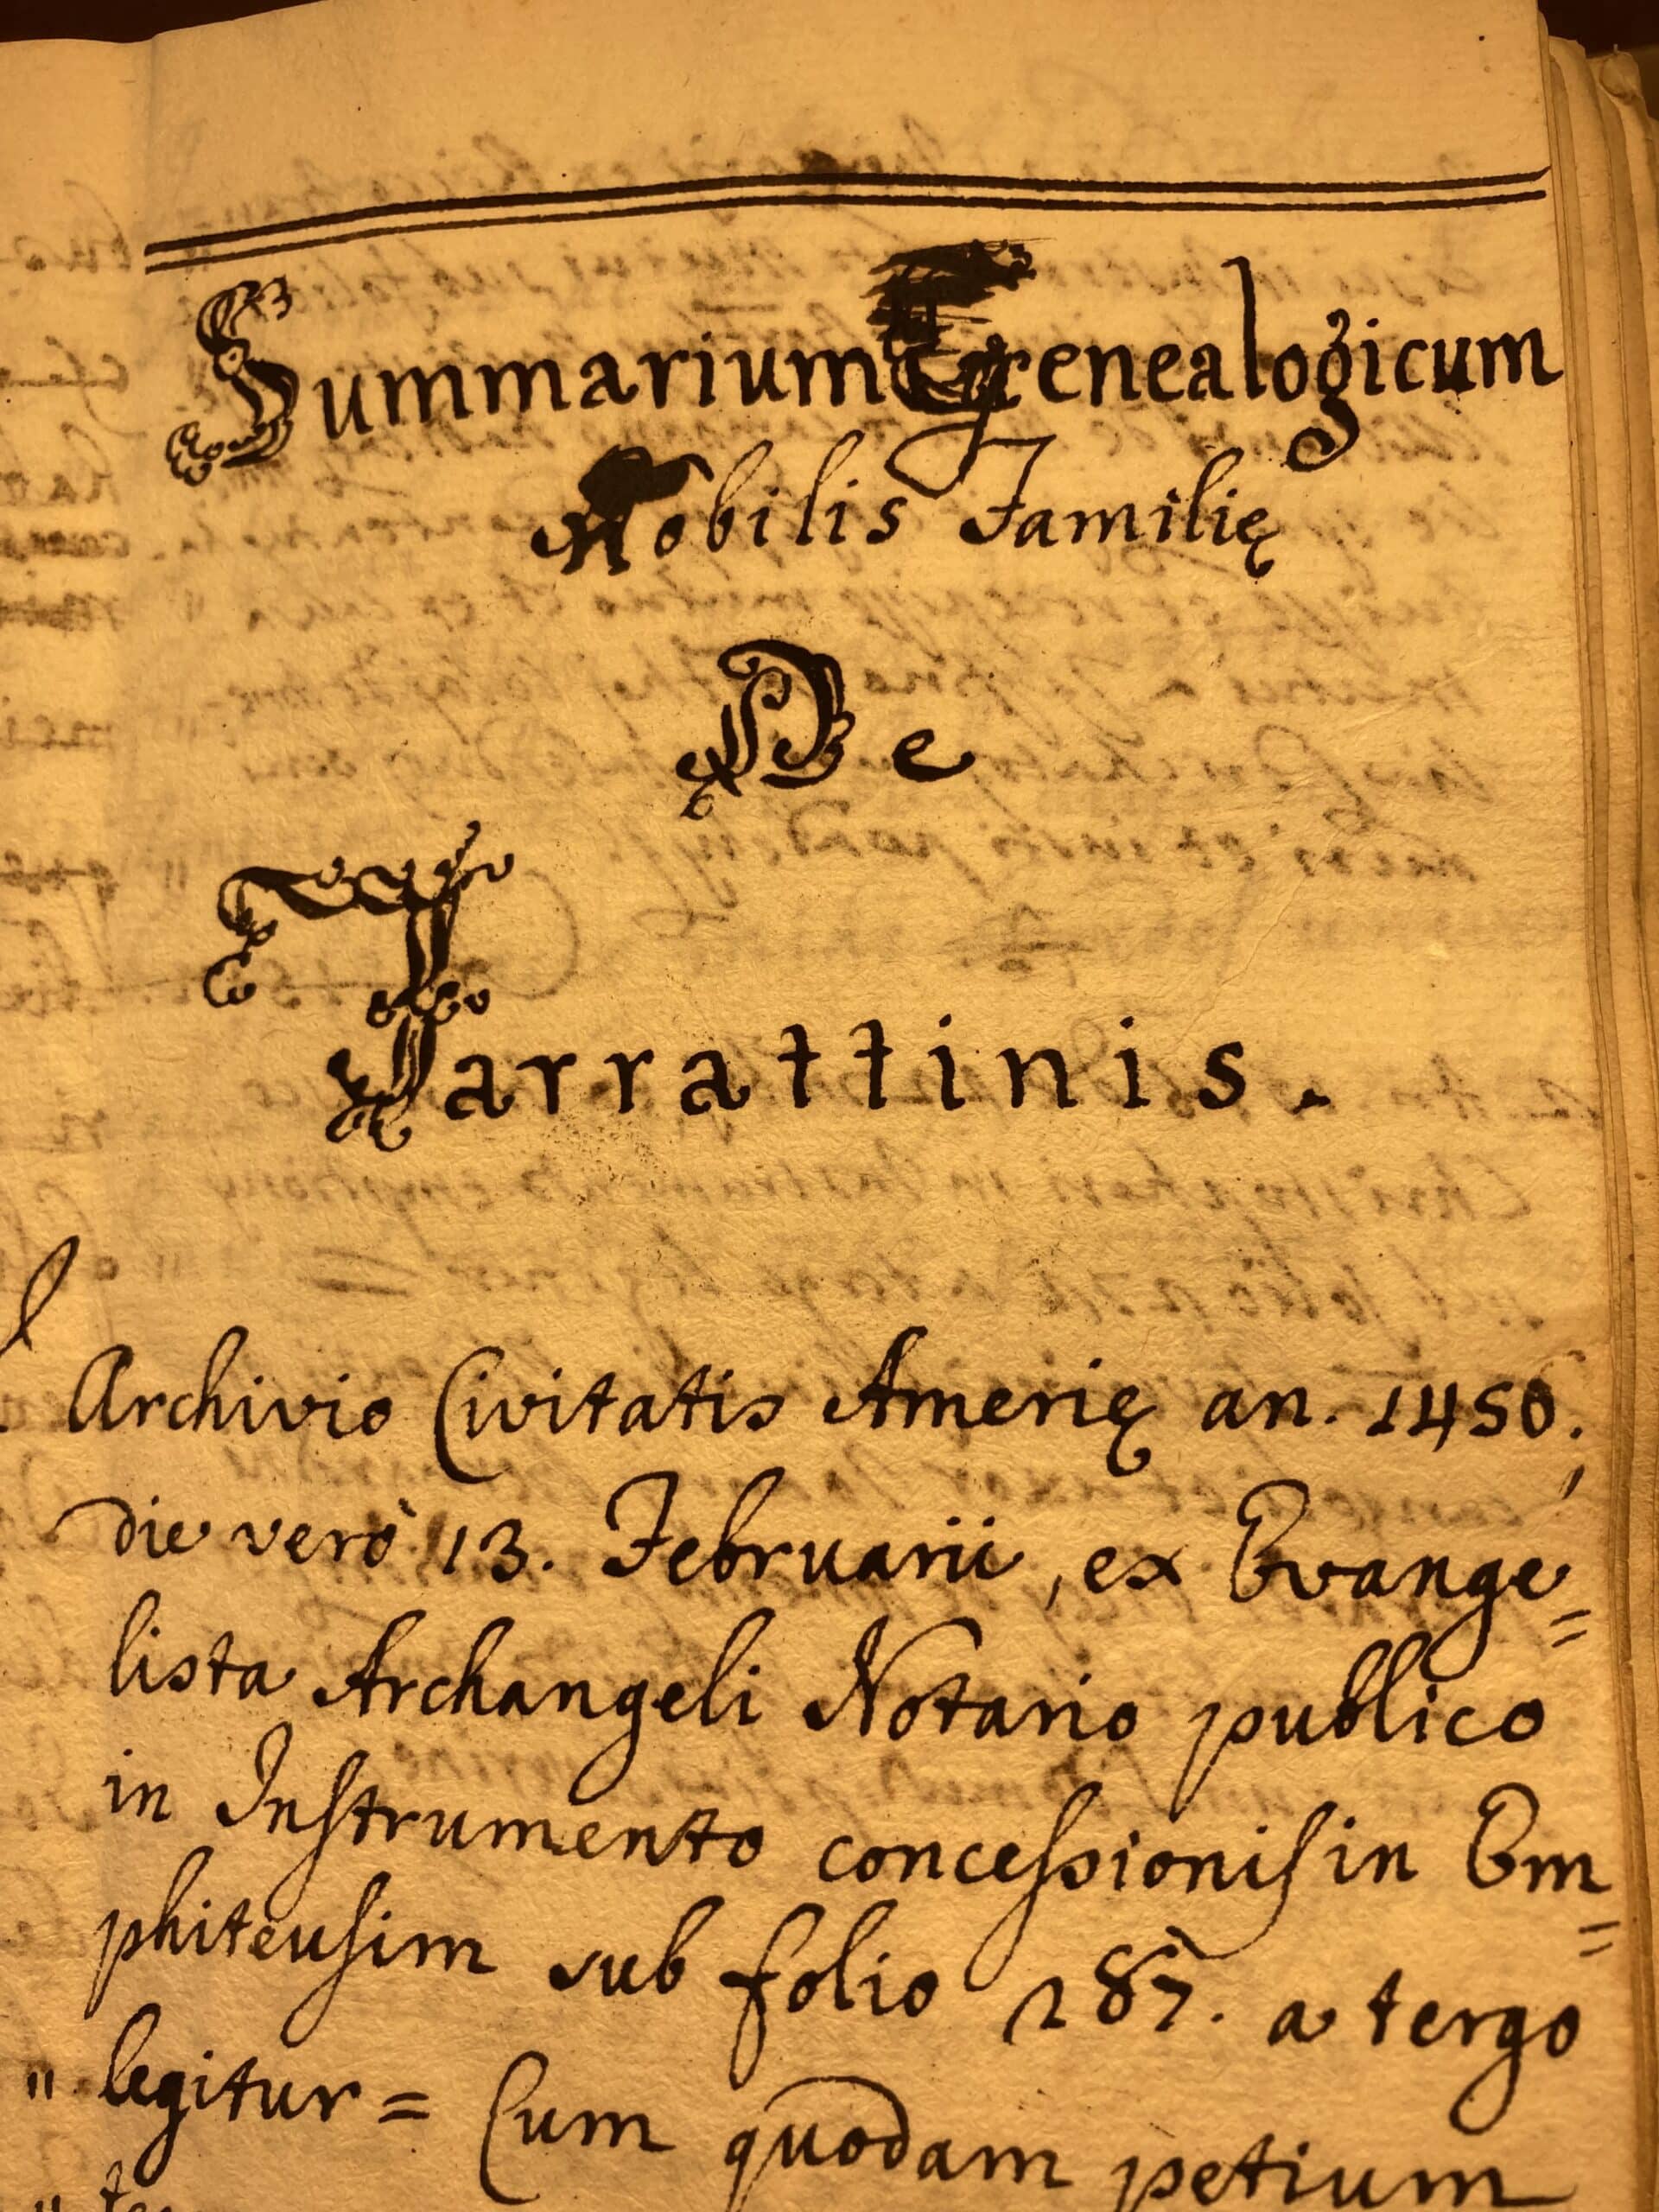 Summarium Genealogicum
Nobilis Familię
De
Farrattinis.
Archivio Civitatis Amerię an. 1450;
die verò 13. Februarii, ex Evange=
lista Archangeli Notario publico
in Instrumento concessionis in Em=
phiteusim sub folio 287. a tergo
" legitur = Cum quodam petium